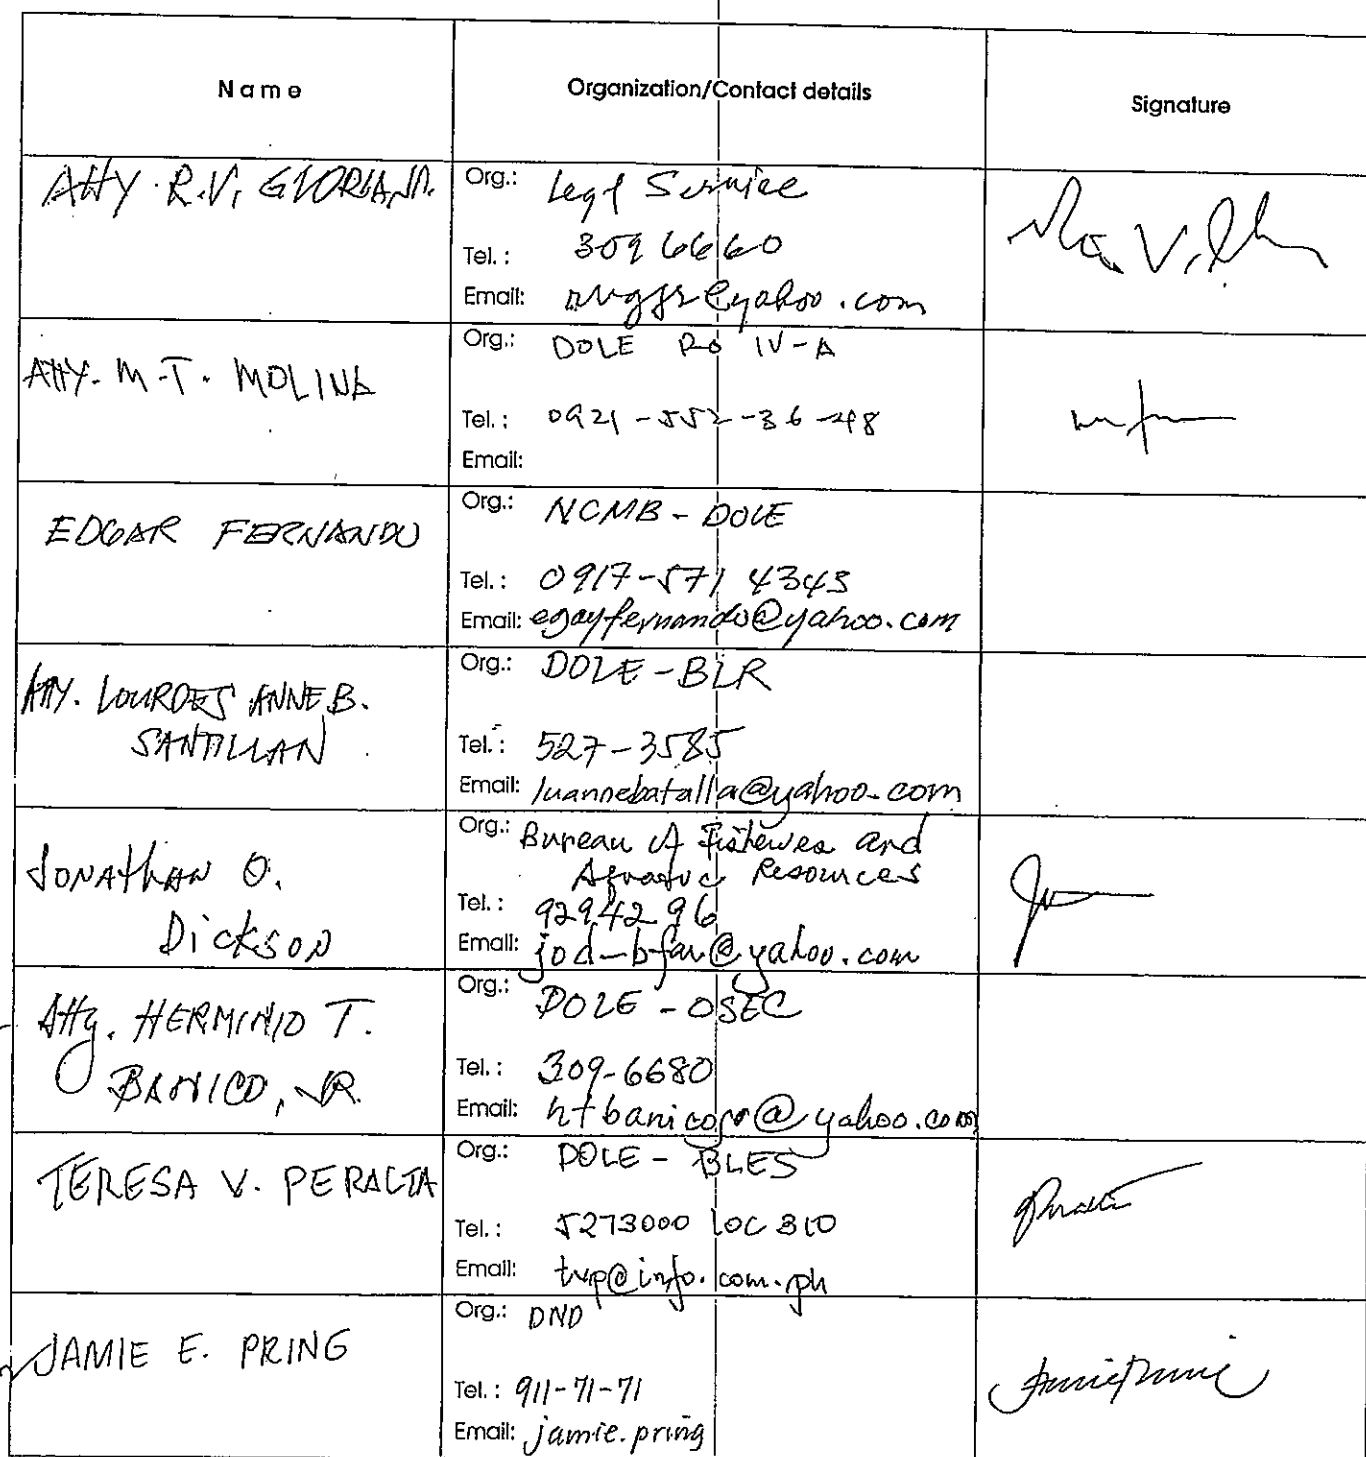 Name Organization/Contact details Signature
Atty. R.V. GLORIA, JR.
Org.: Legl Service
Tel.: 309 6660
Email: rvgjr@yahoo.com
ATTY. M.T. MOLINA
Org.: DOLE RO IV-A
Tel.: 0921-552-36-48
Email:
EDGAR FERNANDO
Org.: NCMB-DOLE
Tel.: 0917-571 4343
Email: egayfernando@yahoo.com
ATTY. LOURDES ANNE B.
SANTILLAN
Org.: DOLE-BLR
Tel.: 527-3585
Email: luannebatalla@yahoo.com
JONATHAN O.
Dickson
Org.: Bureau of Fisheries and
Aquatic Resources
Tel.: 9294296
Email: jod_bfar@yahoo.com
Atty. HERMINIO T.
BANICO, JR.
Org.: DOLE-OSEC
Tel.: 309-6680
Email: htbanicojr@yahoo.com
TERESA V. PERALTA
Org.: DOLE-BLES
Tel.: 5273000 LOC 310
Email: tvp@info.com.ph
JAMIE E. PRING
Org.: DND
Tel.: 911-71-71
Email: jamie.pring